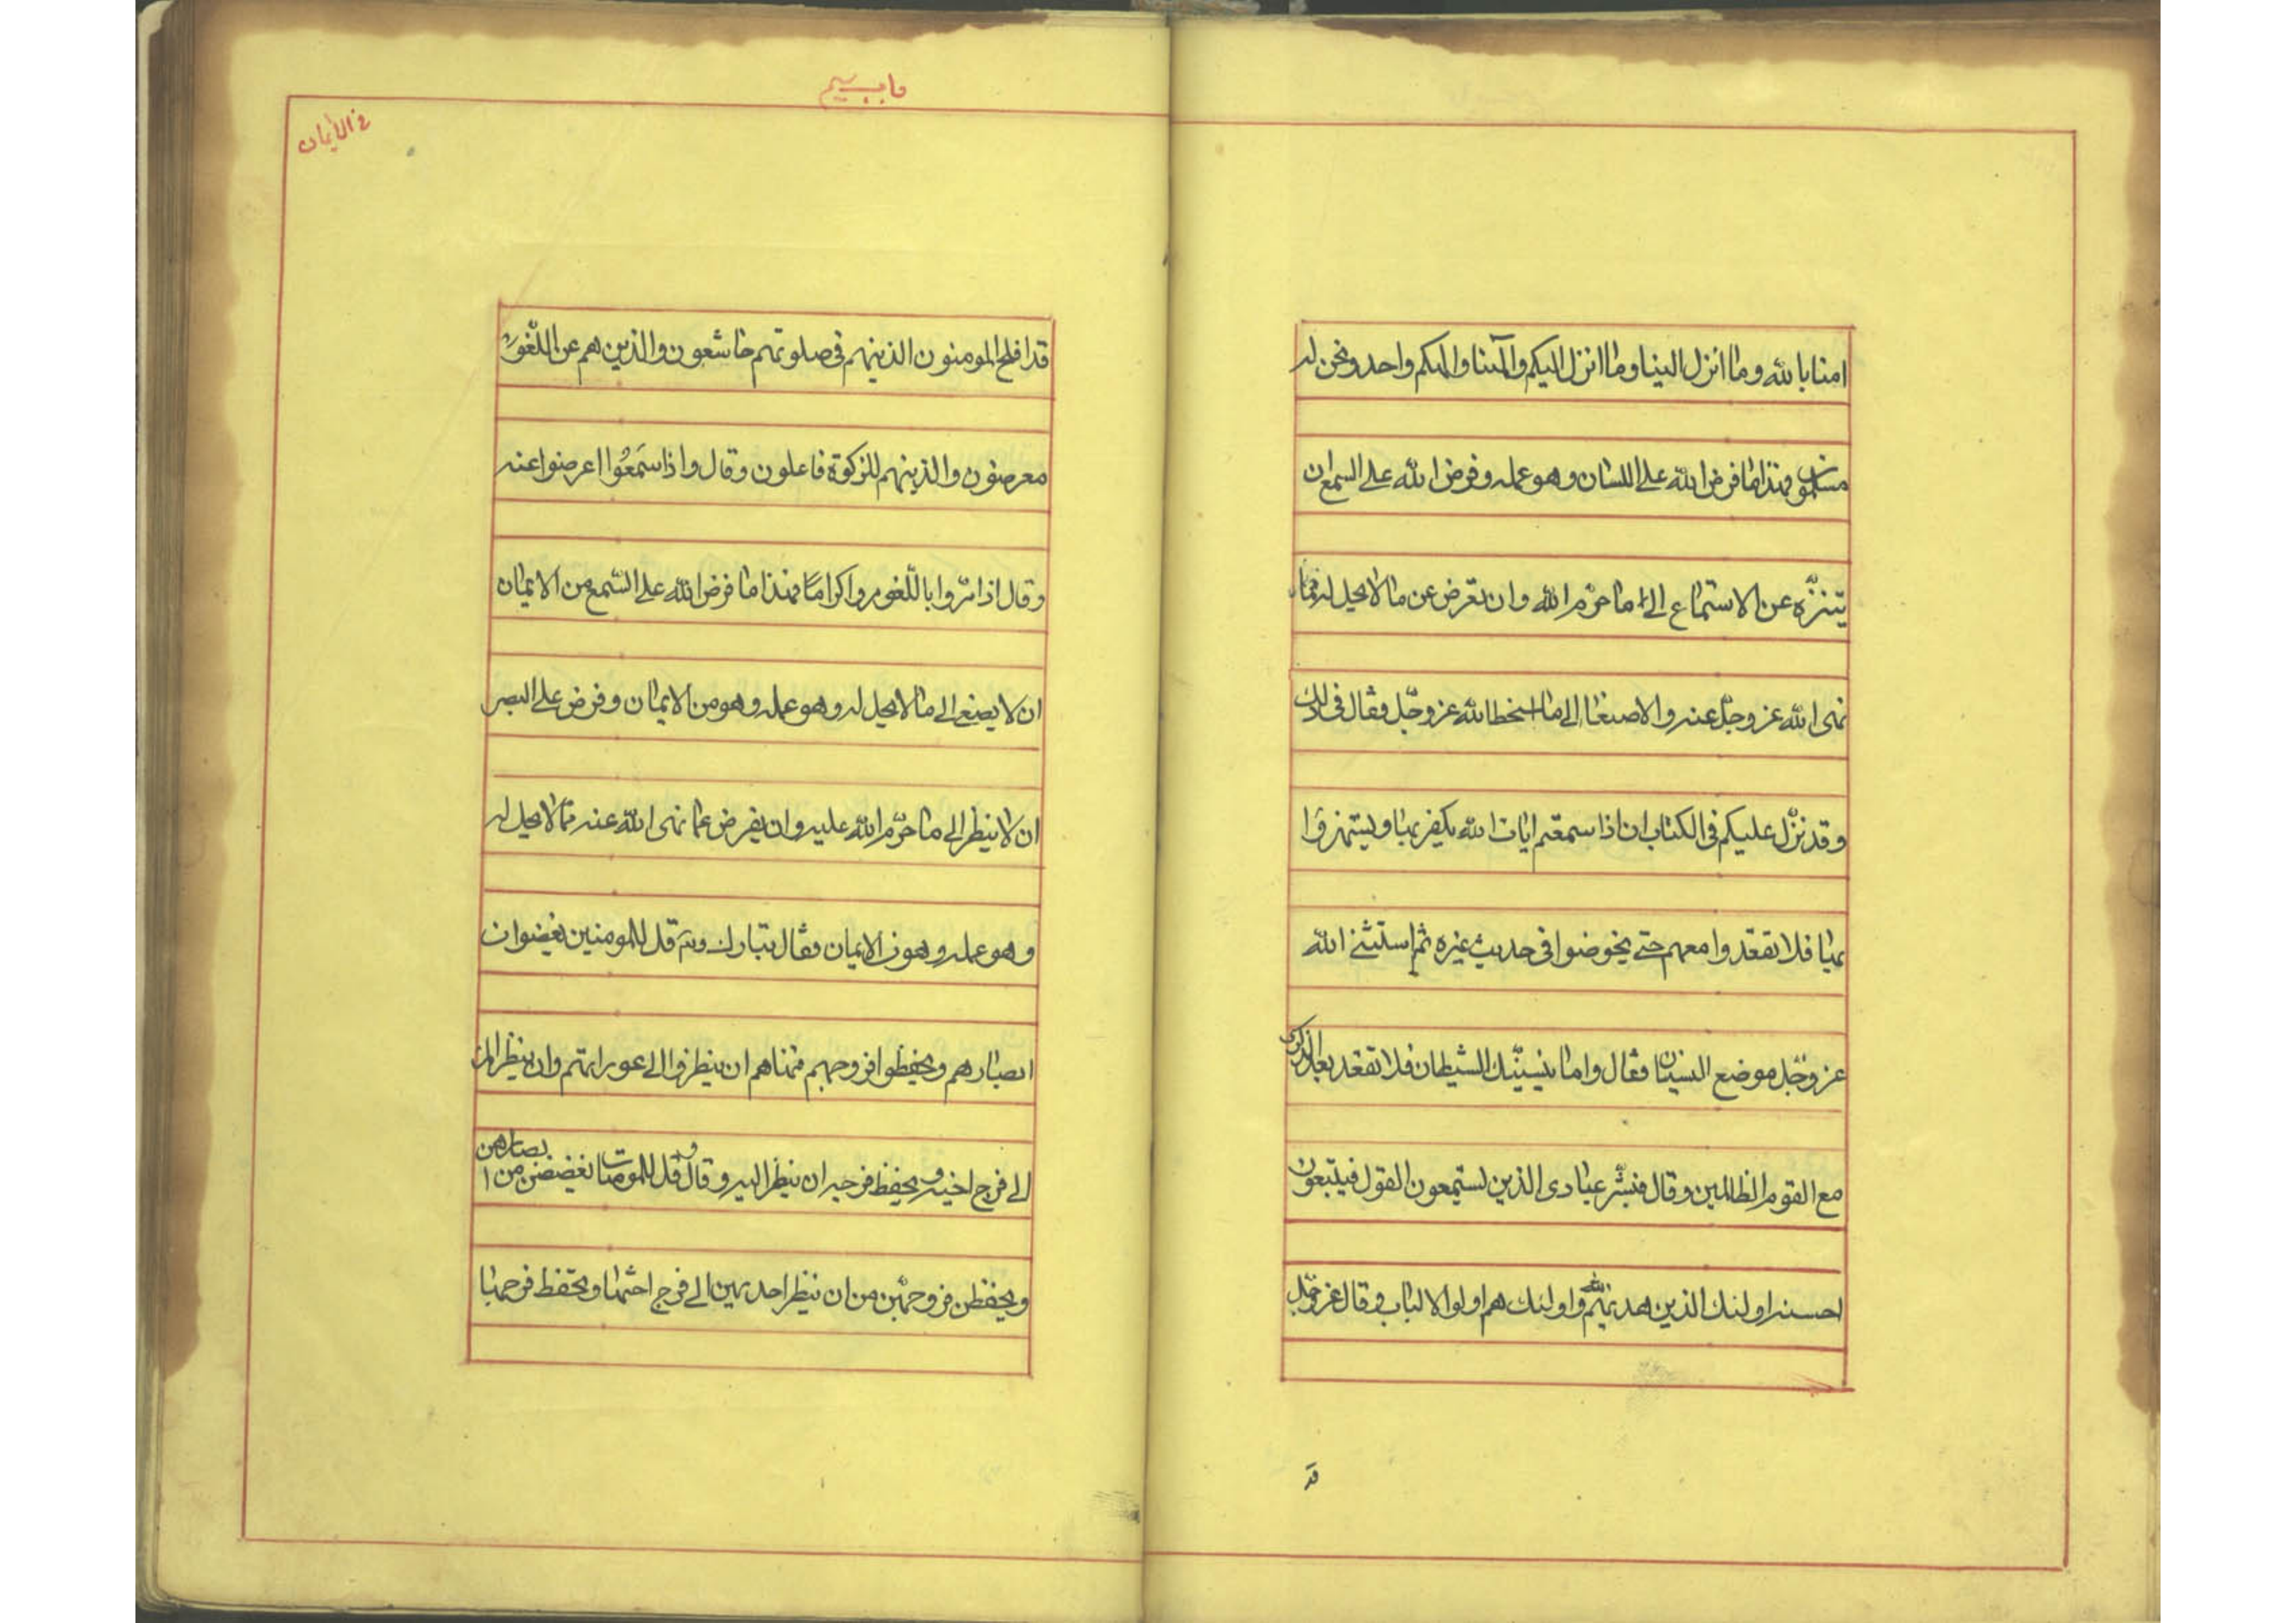 امنا بالله وما انزل الينا وما انزل اليكم والهنا والهكم واحد ونحن له
مسلمون فهذا ما فرض الله على اللسان وهو عمله وفرض الله على السمع ان
يتنزه عن الاستماع الى ما حرم الله وان تعرض عن ما لا يحل له مما
نهى الله عز وجل عنه والاصغا الى ما اسخط الله عز وجل فقال فى ذلك
وقد نزل عليكم فى الكتاب ان اذا سمعتم ايات الله يكفر بها ويستهزؤا
بها فلا تقعدوا معهم حتى يخوضوا فى حديث غيره ثم استثنى الله
عز وجل موضع النسيان فقال واما ينسينك الشيطان فلا تقعد بعد الذكرى
مع القوم الظالمين وقال فبشر عبادى الذين يستمعون القول فيتبعون
احسنه اولئك الذين هديهم الله واولئك هم اولوا الالباب وقال عز وجل
قد
فى الايمان
قد افلح المومنون الذينهم فى صلوتهم خاشعون والذين هم عن اللغو
معرضون والذينهم للزكوة فاعلون وقال واذا سَمعُوا اعرضوا عنه
وقال اذا مرّوا باللّغو مروا كرامًا فهذا ما فرض الله على السّمع من الايمان
ان لا يصغى الى ما لا يحل له وهو عمله وهو من الايمان وفرض على البصر
ان لا ينظر الى ما حرّم الله عليه وان يعرض عما نهى الله عنه مما لا يحل له
وهو عمله وهو من الايمان فقال تبارك وتع قل للمومنين يغضوا من
ابصارهم ويحفظوا فروجهم فنهاهم ان ينظروا الى عوراتهم وان ينظر المرء
الى فرج اخيه ويحفظ فرجه ان ينظر اليه وقال وقل للمومنات يغضضن من ابصارهن
ويحفظن فروجهن من ان ينظر احديهن الى فرج اختها وتحفظ فرجها